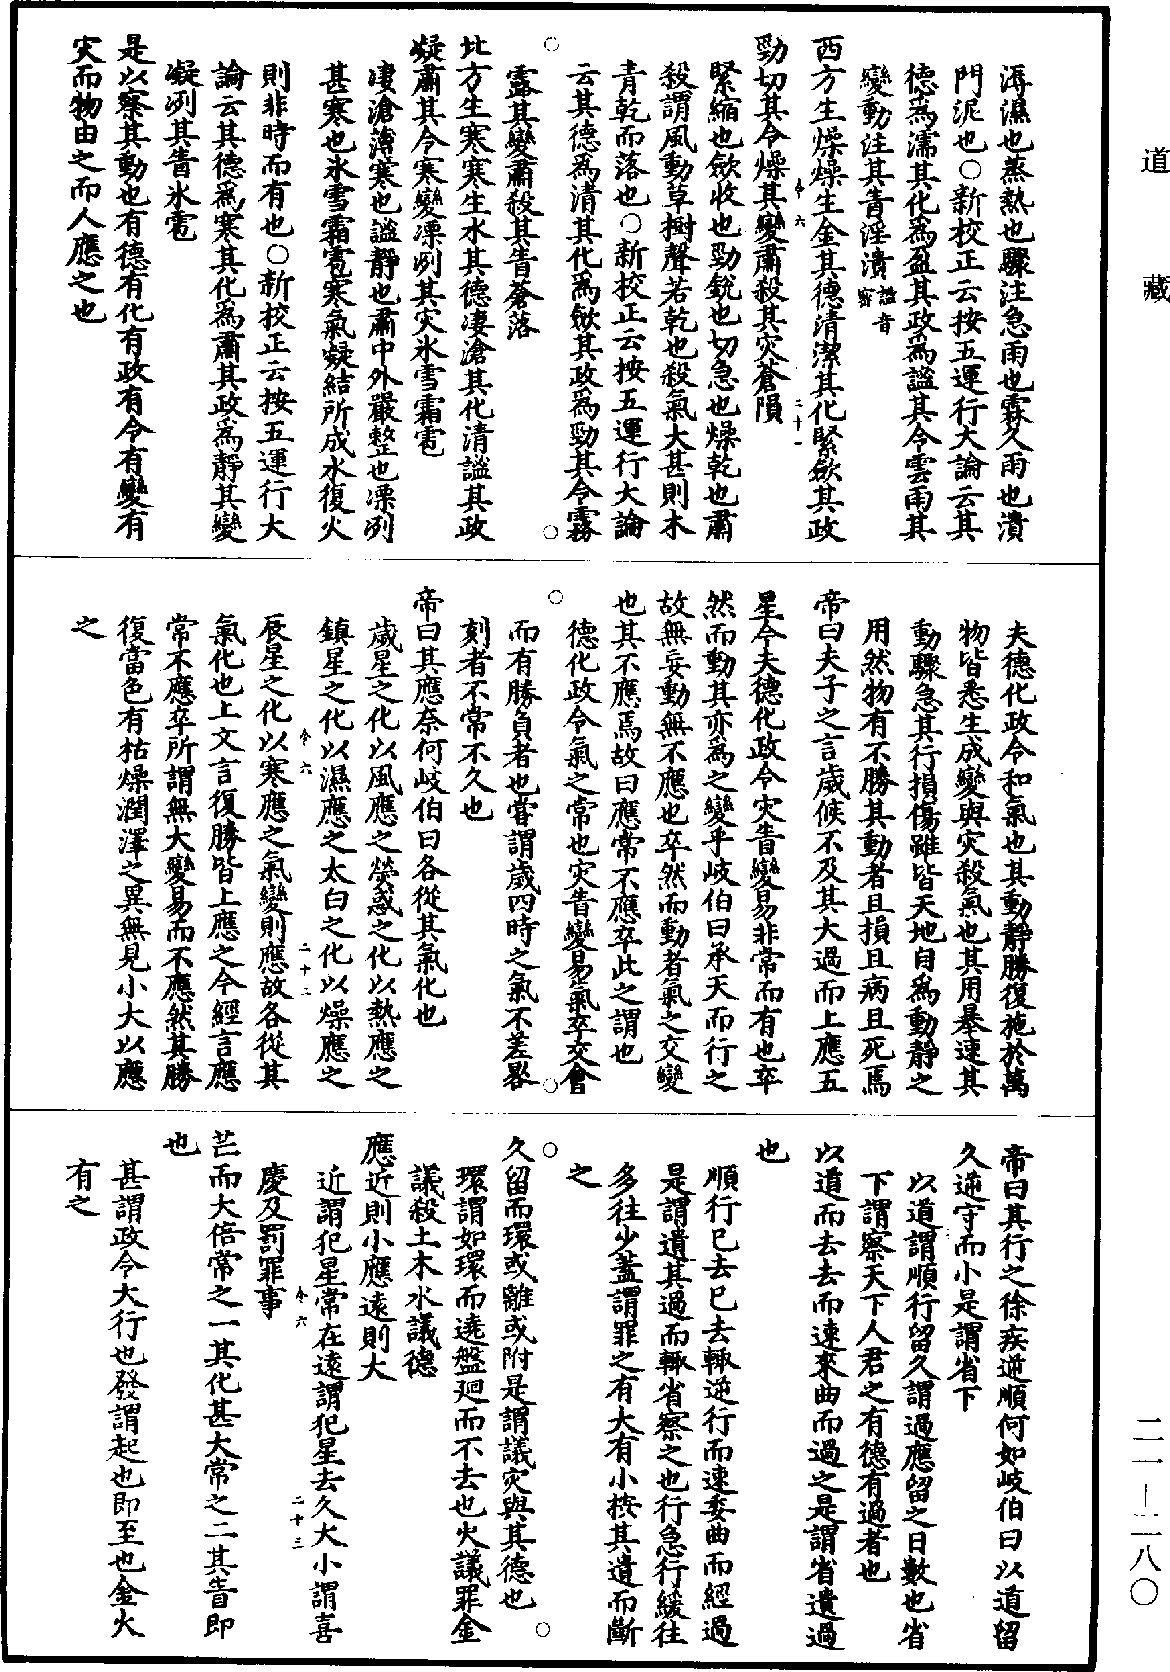 道藏
溽濕也蒸熱也驟注急雨也霖久雨也潰
門泥也○新校正云按五運行大論云其
德爲濡其化爲盈其政爲謐其令雲雨其
變動注其眚淫潰 謐音密
西方生燥燥生金其德清潔其化緊斂其政
勁切其令燥其變肅殺其灾蒼隕
緊縮也斂收也勁銳也切急也燥乾也肅
殺謂風動草樹聲若乾也殺氣大甚則木
青乾而落也○新校正云按五運行大論
云其德爲清其化爲斂其政爲勁其令霧
露其變肅殺其眚蒼落
北方生寒寒生水其德凄滄其化清謐其政
凝肅其令寒變凓冽其灾氷雪霜雹
凄滄薄寒也謐靜也肅中外嚴整也凓冽
甚寒也氷雪霜雹寒氣凝結所成水復火
則非時而有也○新校正云按五運行大
論云其德爲寒其化爲肅其政爲靜其變
凝冽其眚氷雹
是以察其動也有德有化有政有令有變有
灾而物由之而人應之也
令六
二十一
夫德化政令和氣也其動靜勝復施於萬
物皆悉生成變與灾殺氣也其用暴速其
動驟急其行損傷雖皆天地自爲動靜之
用然物有不勝其動者且損且病且死焉
帝曰夫子之言歲候不及其大過而上應五
星今夫德化政令灾眚變易非常而有也卒
然而動其亦爲之變乎岐伯曰承天而行之
故無妄動無不應也卒然而動者氣之交變
也其不應焉故曰應常不應卒此之謂也
德化政令氣之常也灾眚變易氣卒交會
而有勝負者也常謂歲四時之氣不差晷
刻者不常不久也
帝曰其應奈何岐伯曰各從其氣化也
歲星之化以風應之熒惑之化以熱應之
鎮星之化以濕應之太白之化以燥應之
辰星之化以寒應之氣變則應故各從其
氣化也上文言復勝皆上應之今經言應
常不應卒所謂無大變易而不應然其勝
復當色有枯燥潤澤之異無見小大以應
之
令六
二十二
帝曰其行之徐疾逆順何如岐伯曰以道留
久逆守而小是謂省下
以道謂順行留久謂過應留之日數也省
下謂察天下人君之有德有過者也
以道而去去而速來曲而過之是謂省遺過
也
順行已去已去輒逆行而速委曲而經過
是謂遺其過而輒省察之也行急行緩往
多往少蓋謂罪之有大有小按其遺而斷
之
久留而環或離或附是謂議灾與其德也
環謂如環而遶盤迴而不去也火議罪金
議殺土木水議德
應近則小應遠則大
近謂犯星常在遠謂犯星去久大小謂喜
慶及罰罪事
芒而大倍常之一其化甚大常之二其眚即
也
甚謂政令大行也發謂起也即至也金火
有之
令六
二十三
二一—二八〇